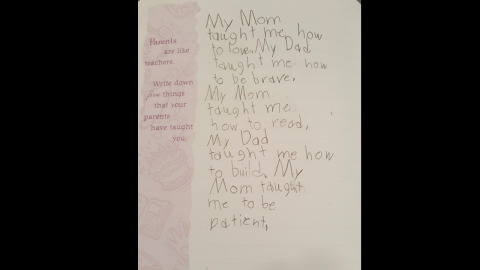 Parents
are like
teachers.
Write down
five things
that your
parents
have taught
you.
My Mom
taught me how
to love. My Dad
taught me how
to be brave.
My Mom
taught me
how to read.
My Dad
taught me how
to build. My
Mom taught
me to be
patient.